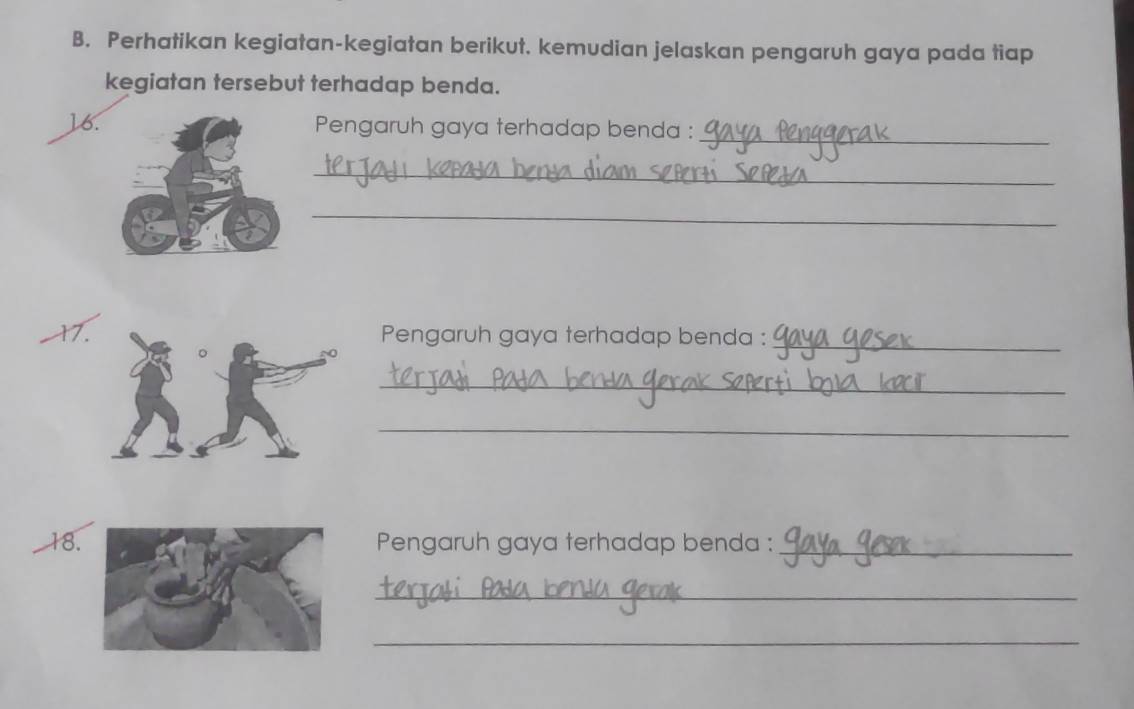 B. Perhatikan kegiatan-kegiatan berikut. kemudian jelaskan pengaruh gaya pada tiap
kegiatan tersebut terhadap benda.
16. Pengaruh gaya terhadap benda : gaya Penggerak
terJadi kepada benda diam seperti Sepeda
17. Pengaruh gaya terhadap benda : gaya gesek
terJadi Pada benda gerak seperti bola kecil
18. Pengaruh gaya terhadap benda : gaya gesek
terJadi Pada benda gerak